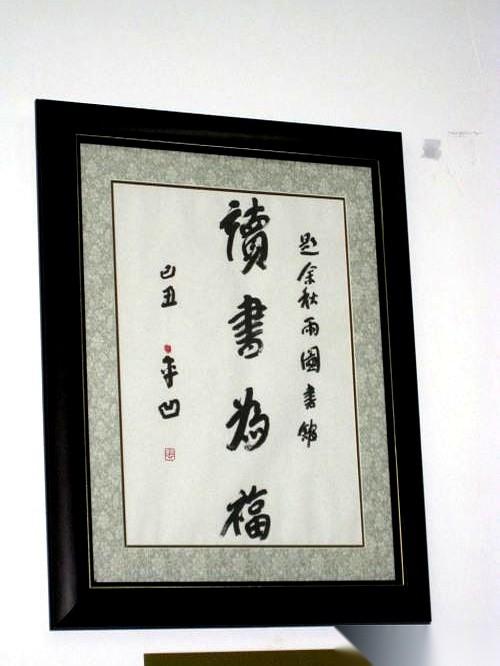 题余秋雨圖書館
讀書為福
己丑 平凹